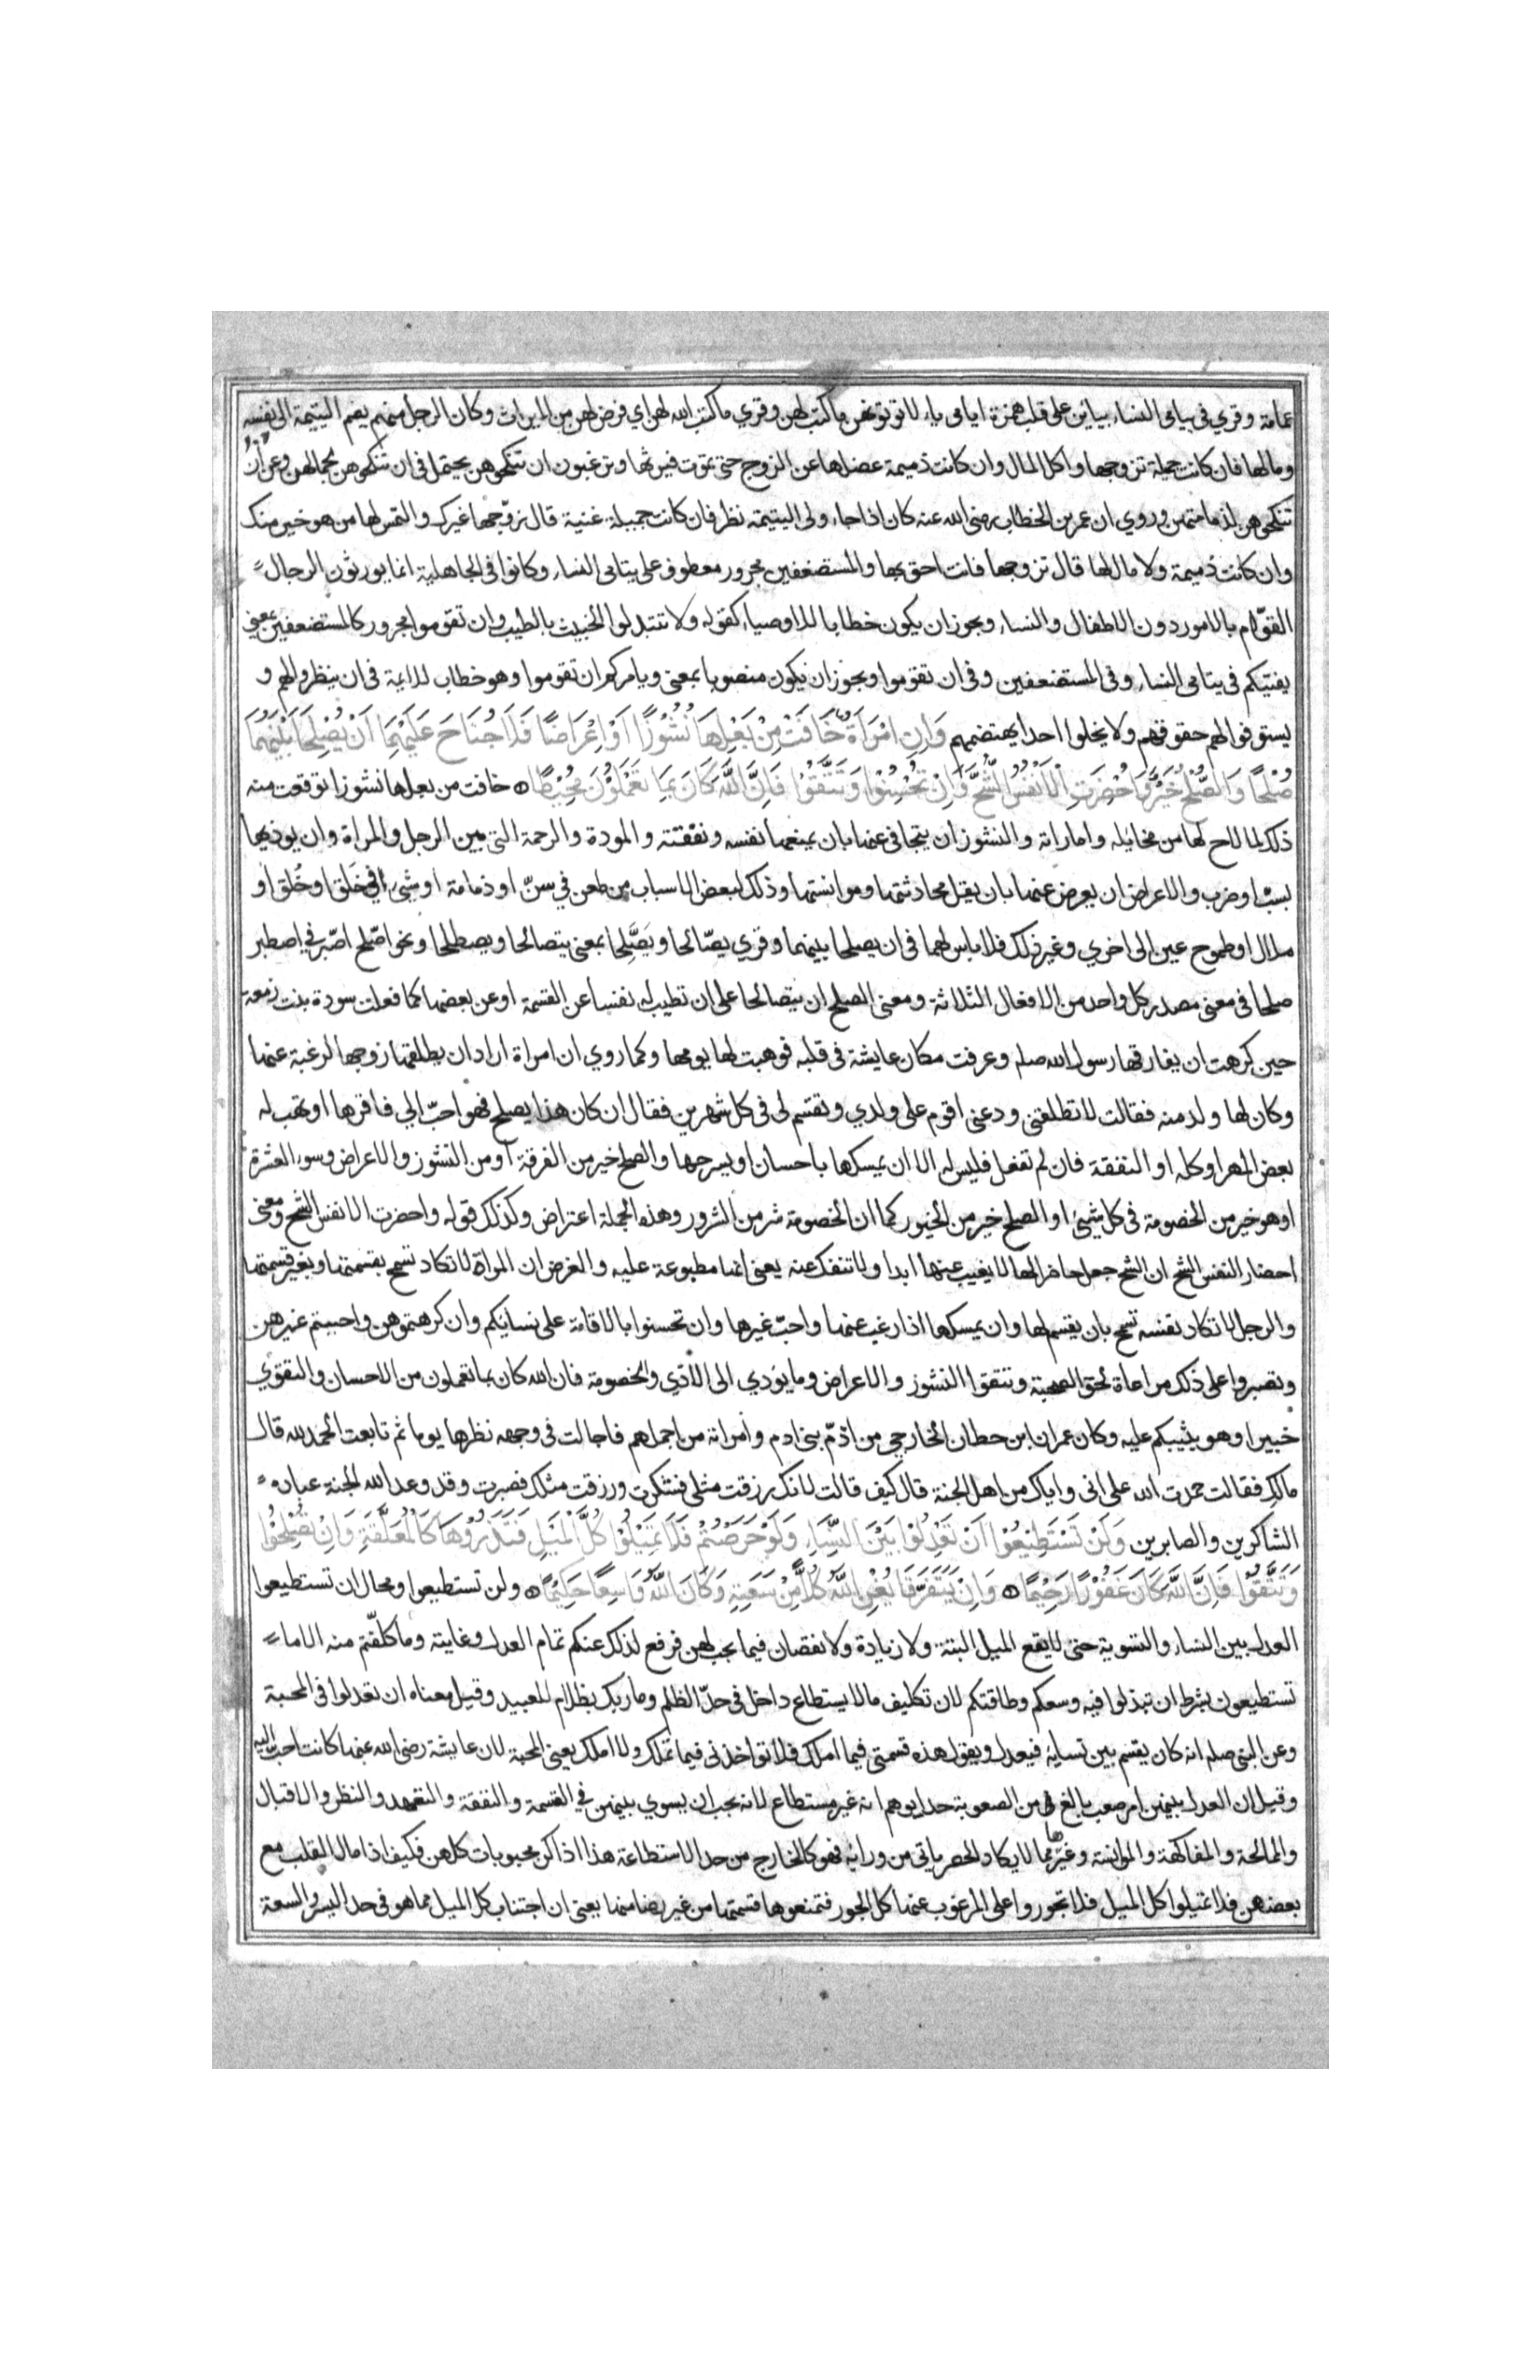 عمامة وقري في يیامى النساء بیایین علی قلب همزة ایامی یاء لا توتونهن ما كتب لهن وقري ما كتب الله لهن اي فرض لهن من الميراث وكان الرجل منهم يضم اليتيمة الى نفسه
ومالها فان كانت جميلة تزوجها واكل المال وان كانت ذميمة عضلها عن الزوج حتى تموت فيرثها وترغبون ان تنكحوهن يحتمل في ان تنكحوهن لجمالهن وعن ان
تنكحوهن لذمامتهن وروي ان عمر بن الخطاب رضى الله عنه كان اذا جاء ولى اليتيمة نظر فان كانت جميلة غنية قال زوّجها غيرك والتمس لها من هو خير منك
وان كانت ذميمة ولا مال لها قال تزوجها فانت احق بها والمستضعفين مجرور معطوف على يتامى النساء وكانوا فى الجاهلية انما يورثون الرجال
القوّام بالامور دون الاطفال والنساء ويجوز ان يكون خطابا للاوصياء كقوله ولا تتبدلوا الخبيث بالطيب وان تقوموا مجرور كالمستضعفين بمعنى
يفتيكم فى يتامى النساء وفى المستضعفين وفى ان تقوموا ويجوز ان يكون منصوبا بمعنى ويامركم ان تقوموا وهو خطاب للائمة فى ان ينظروا لهم و
يستوفوا لهم حقوقهم ولا يخلوا احدا يهتضمهم وَاِنِ امْرَاَةٌ خَافَتْ مِنْ بَعْلِهَا نُشُوْزًا اَوْ اِعْرَاضًا فَلَا جُنَاحَ عَلَيْهِمَا اَنْ يُصْلِحَا بَيْنَهُمَا
صُلْحًا وَالصُّلْحُ خَيْرٌ وَاُحْضِرَتِ الْاَنْفُسُ الشُّحَّ وَاِنْ تُحْسِنُوْا وَتَتَّقُوْا فَاِنَّ اللّٰهَ كَانَ بِمَا تَعْمَلُوْنَ خَبِيْرًا خافت من بعلها نشوزا توقعت منه
ذلك لما لاح لها من مخايله واماراته والنشوز ان يتجافى عنها بان يمنعها نفسه ونفقته والمودة والرحمة التى بين الرجل والمراة وان يوذيها
بسبّ او ضرب والاعراض ان يعرض عنها بان يقل محادثتها وموانستها وذلك لبعض الاسباب من طعن في سنّ او ذمامة او شيء في خَلق او خُلق او
ملال او طموح عين الى اخري وغير ذلك فلا باس لهما فى ان يصلحا بينهما وقري يصّالحا ويَصَّلحا بمعنى يتصالحا ويصطلحا ونحو اصّلح اصّبر في اصطبر
صلحا فى معنى مصدر كل واحد من الافعال الثلاثة ومعنى الصلح ان يتصالحا على ان تطيب له نفسا عن القسمة او عن بعضها كما فعلت سودة بنت زمعة
حين كرهت ان يفارقها رسول الله صلم وعرفت مكان عايشة فى قلبه فوهبت لها يومها وكما روي ان امراة اراد ان يطلقها زوجها لرغبة عنها
وكان لها ولد منه فقالت لا تطلقنى ودعنى اقوم على ولدي وتقسم لى فى كل شهرين فقال ان كان هذا يصلح فهو احبّ الي فاقرها او تهب له
بعض المهر او كله او النفقة فان لم تفعل فليس له الا ان يمسكها باحسان او يسرحها والصلح خير من الفرقة او من النشوز والاعراض وسوء العشرة
او هو خير من الخصومة فى كل شيئ او الصلح خير من الخيور كما ان الخصومة شر من الشرور وهذه الجملة اعتراض وكذلك قوله واحضرت الانفس الشح ومعنى
احضار النفس الشح ان الشح جعل حاضرا لها لا يغيب عنها ابدا ولا تنفك عنه يعنى انها مطبوعة عليه والغرض ان المراة لا تكاد تسمح بقسمتها وبغير قسمتها
والرجل لا تكاد نفسه تسمح بان يقسم لها وان يمسكها اذا رغب عنها واحبّ غيرها وان تحسنوا بالاقامة على نسائكم وان كرهتموهن واحببتم غيرهن
وتصبروا على ذلك مراعاة لحق الصحبة وتتقوا النشوز والاعراض وما يؤدي الى الاذي والخصومة فان الله كان بما تعملون من الاحسان والتقوي
خبيرا وهو يثيبكم عليه وكان عمران ابن حطان الخارجي من اذمّ بنى ادم وامراته من اجملهم فاجالت فى وجهه نظرها يوما ثم تابعت الحمد لله قال
مالك فقالت حمدت الله على انى واياك من اهل الجنة قال كيف قالت لانك رزقت مثلى فشكرت ورزقت مثلك فصبرت وقد وعد الله الجنة عباده
الشاكرين والصابرين وَلَنْ تَسْتَطِيْعُوْا اَنْ تَعْدِلُوْا بَيْنَ النِّسَاءِ وَلَوْ حَرَصْتُمْ فَلَا تَمِيْلُوْا كُلَّ الْمَيْلِ فَتَذَرُوْهَا كَالْمُعَلَّقَةِ وَاِنْ تُصْلِحُوْا
وَتَتَّقُوْا فَاِنَّ اللّٰهَ كَانَ غَفُوْرًا رَحِيْمًا وَاِنْ يَتَفَرَّقَا يُغْنِ اللّٰهُ كُلًّا مِّنْ سَعَتِهِ وَكَانَ اللّٰهُ وَاسِعًا حَكِيْمًا ولن تستطيعوا ومحال ان تستطيعوا
العدل بين النساء والتسوية حتى لا يقع الميل البتة ولا زيادة ولا نقصان فيما يجب لهن فرفع لذلك عنكم تمام العدل وغايته وما كلّفتم منه الا ما
تستطيعون بشرط ان تبذلوا فيه وسعكم وطاقتكم لان تكليف ما لا يستطاع داخل فى حدّ الظلم وما ربك بظلام للعبيد وقيل معناه ان تعدلوا فى المحبة
وعن النبى صلم انه كان يقسم بين نسائه فيعدل ويقول هذه قسمتى فيما املك فلا تواخذنى فيما تملك ولا املك يعنى المحبة لان عايشة رضى الله عنها كانت احبّ اليه
وقيل ان العدل بينهن امر صعب بالغ من الصعوبة حدا يوهم انه غير مستطاع لانه يجب ان يسوي بينهن في القسمة والنفقة والتعهد والنظر والاقبال
والممالحة والمفاكهة والموانسة وغيرها مما لا يكاد الحصر ياتى من ورائه فهو كالخارج من حد الاستطاعة هذا اذا كن محبوبات كلهن فكيف اذا مال القلب مع
بعضهن فلا تميلوا كل الميل فلا تجوروا على المرغوب عنها كل الجور فتمنعوها قسمتها من غير رضا منها يعنى ان اجتناب كل الميل مما هو فى حد اليسر والسعة